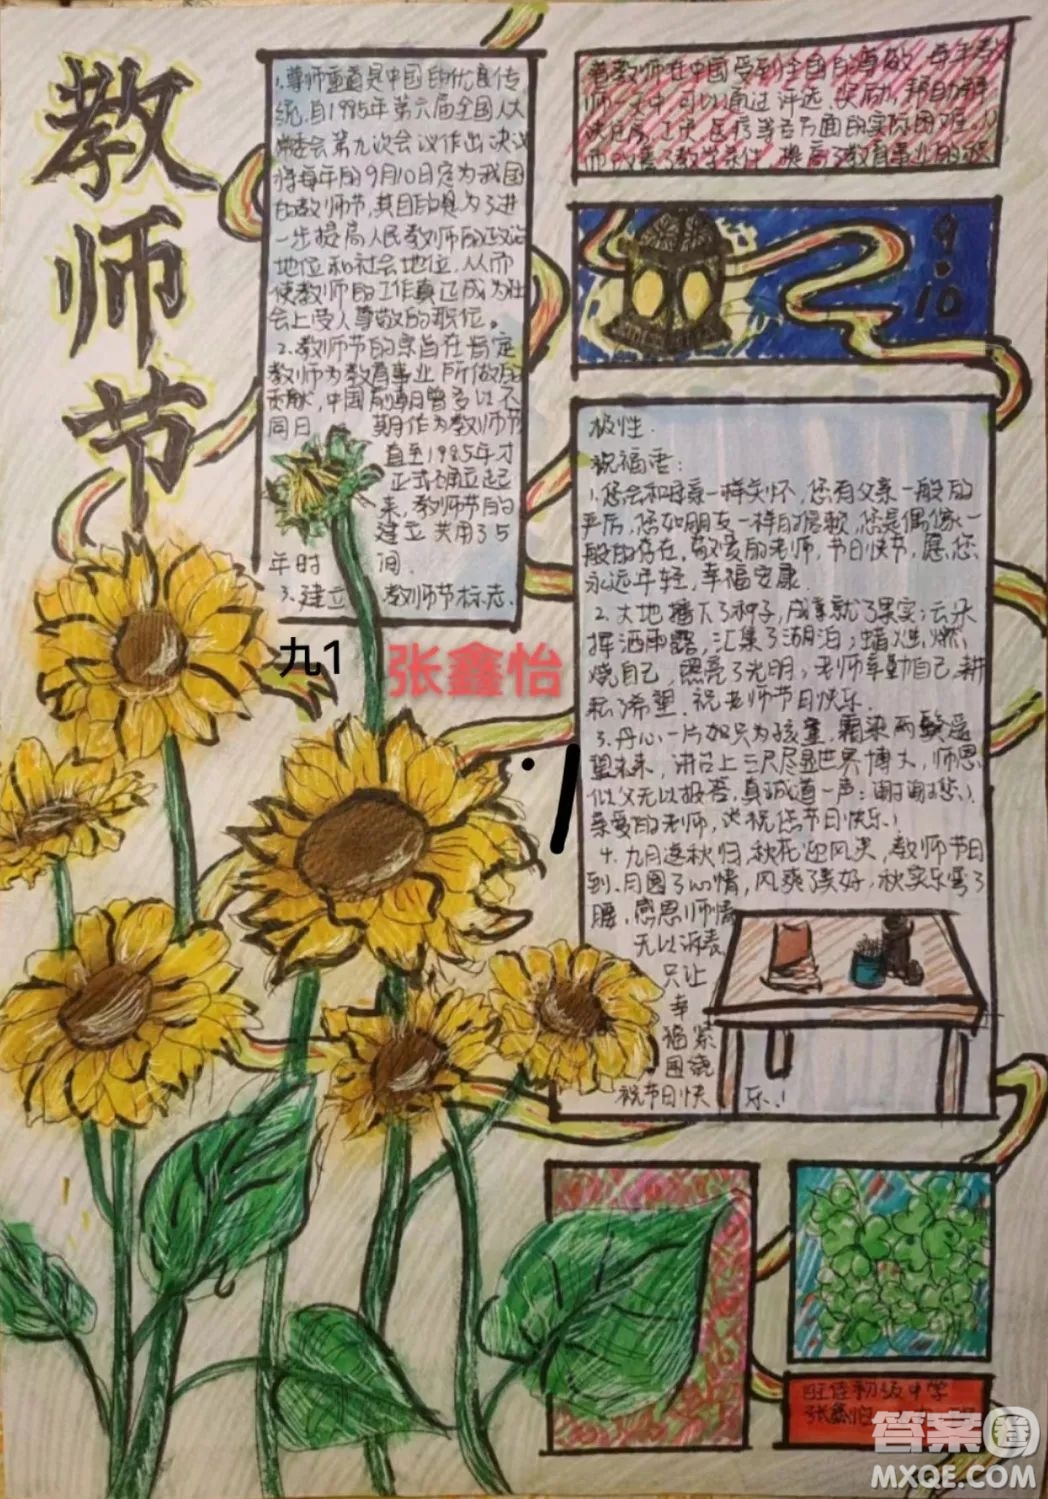 教师节
1.尊师重道是中国的优良传
统,自1985年第六届全国人大
常委会第九次会议作出决议
将每年的9月10日定为我国
的教师节,其目的是为了进
一步提高人民教师的政治
地位和社会地位,从而
使教师的工作真正成为社
会上受人尊敬的职位。
2.教师节的宗旨在肯定
教师为教育事业所做的
贡献,中国
同日 期作为教师节
直至1985年才
正式确立起
来,教师节的
建立共用了5
年时 间.
3.建立 教师节标志.
着教师在中国受到全国的尊敬.每年教
师节中,可以通过评选、奖励,帮助解
决住房、工资、医疗等各方面的实际困难,从
而改善了教学条件,提高了教育事业的积
9.10
极性.
祝福语:
1.您会和母亲一样关怀,您有父亲一般的
严厉,您如朋友一样的信赖,您是偶像一
般的存在,敬爱的老师,节日快节,愿您
永远年轻,幸福安康.
2.大地播下了种子,成就了果实;云朵
挥洒雨露,汇集了湖泊;蜡烛燃
烧自己,照亮了光明;老师辛勤自己,耕
耘了希望.祝老师节日快乐.
3.丹心一片如只为孩童,霜染两鬓遥
望未来,讲台上三尺尽显世界博大,师恩
似父无以报答,真诚道一声:谢谢您!
亲爱的老师,祝您节日快乐!
4.九月逐秋归,秋花迎风笑,教师节日
到.月圆了心情,风爽了美好,秋实乐弯了
腰,感恩师情
无以诉表
只让
幸
福萦
围绕
祝节日快 乐!
九1 张鑫怡
旺佳初级中学
张鑫怡
答案圈
MXQE.COM